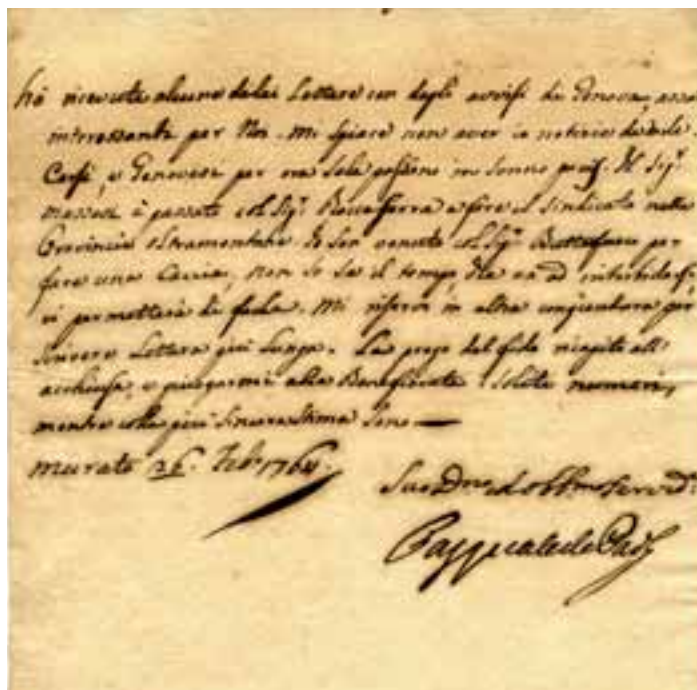 Hò ricevute alcune delei Lettere con degli avvisi di Genova, assai
interessanti per Noi. Mi spiace non aver io notizie
Corsi, e Genovesi per ora. Il Sig.r
Massesi è passato col Sig.r Roccaserra a fare il sindicato nella
Provincia oltramontana. Io son venuto col Sig.r Buttafuoco per
fare una Caccia, non so se il tempo, che va ad intorbidarsi,
ci permetterà di farla. Mi riservo in altra congiuntura per
scrivere Lettera più lunga. La prego del fido ricapito all'
acchiusa, e
mentre colla più sincera stima sono
Murato 26. Feb. 1764.
Suo Dmo ed obbmo Servid.e
Pasquale de Paoli